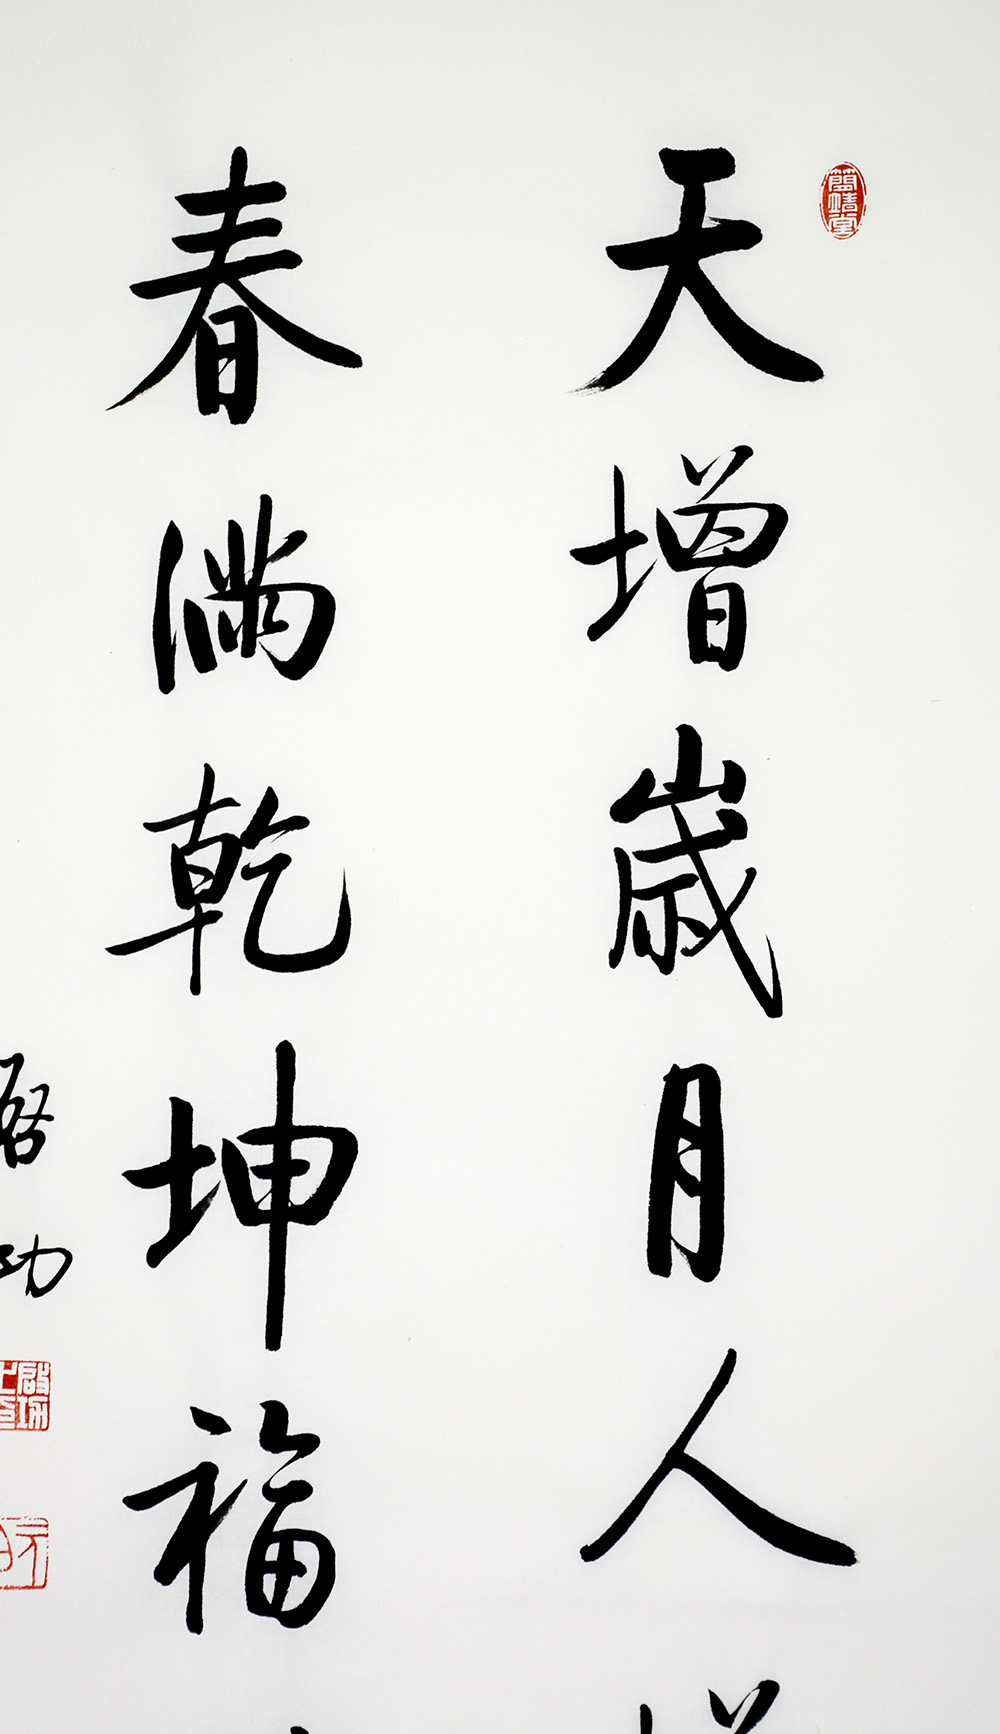 天增歲月人
春满乾坤福
啓功
簡靖堂